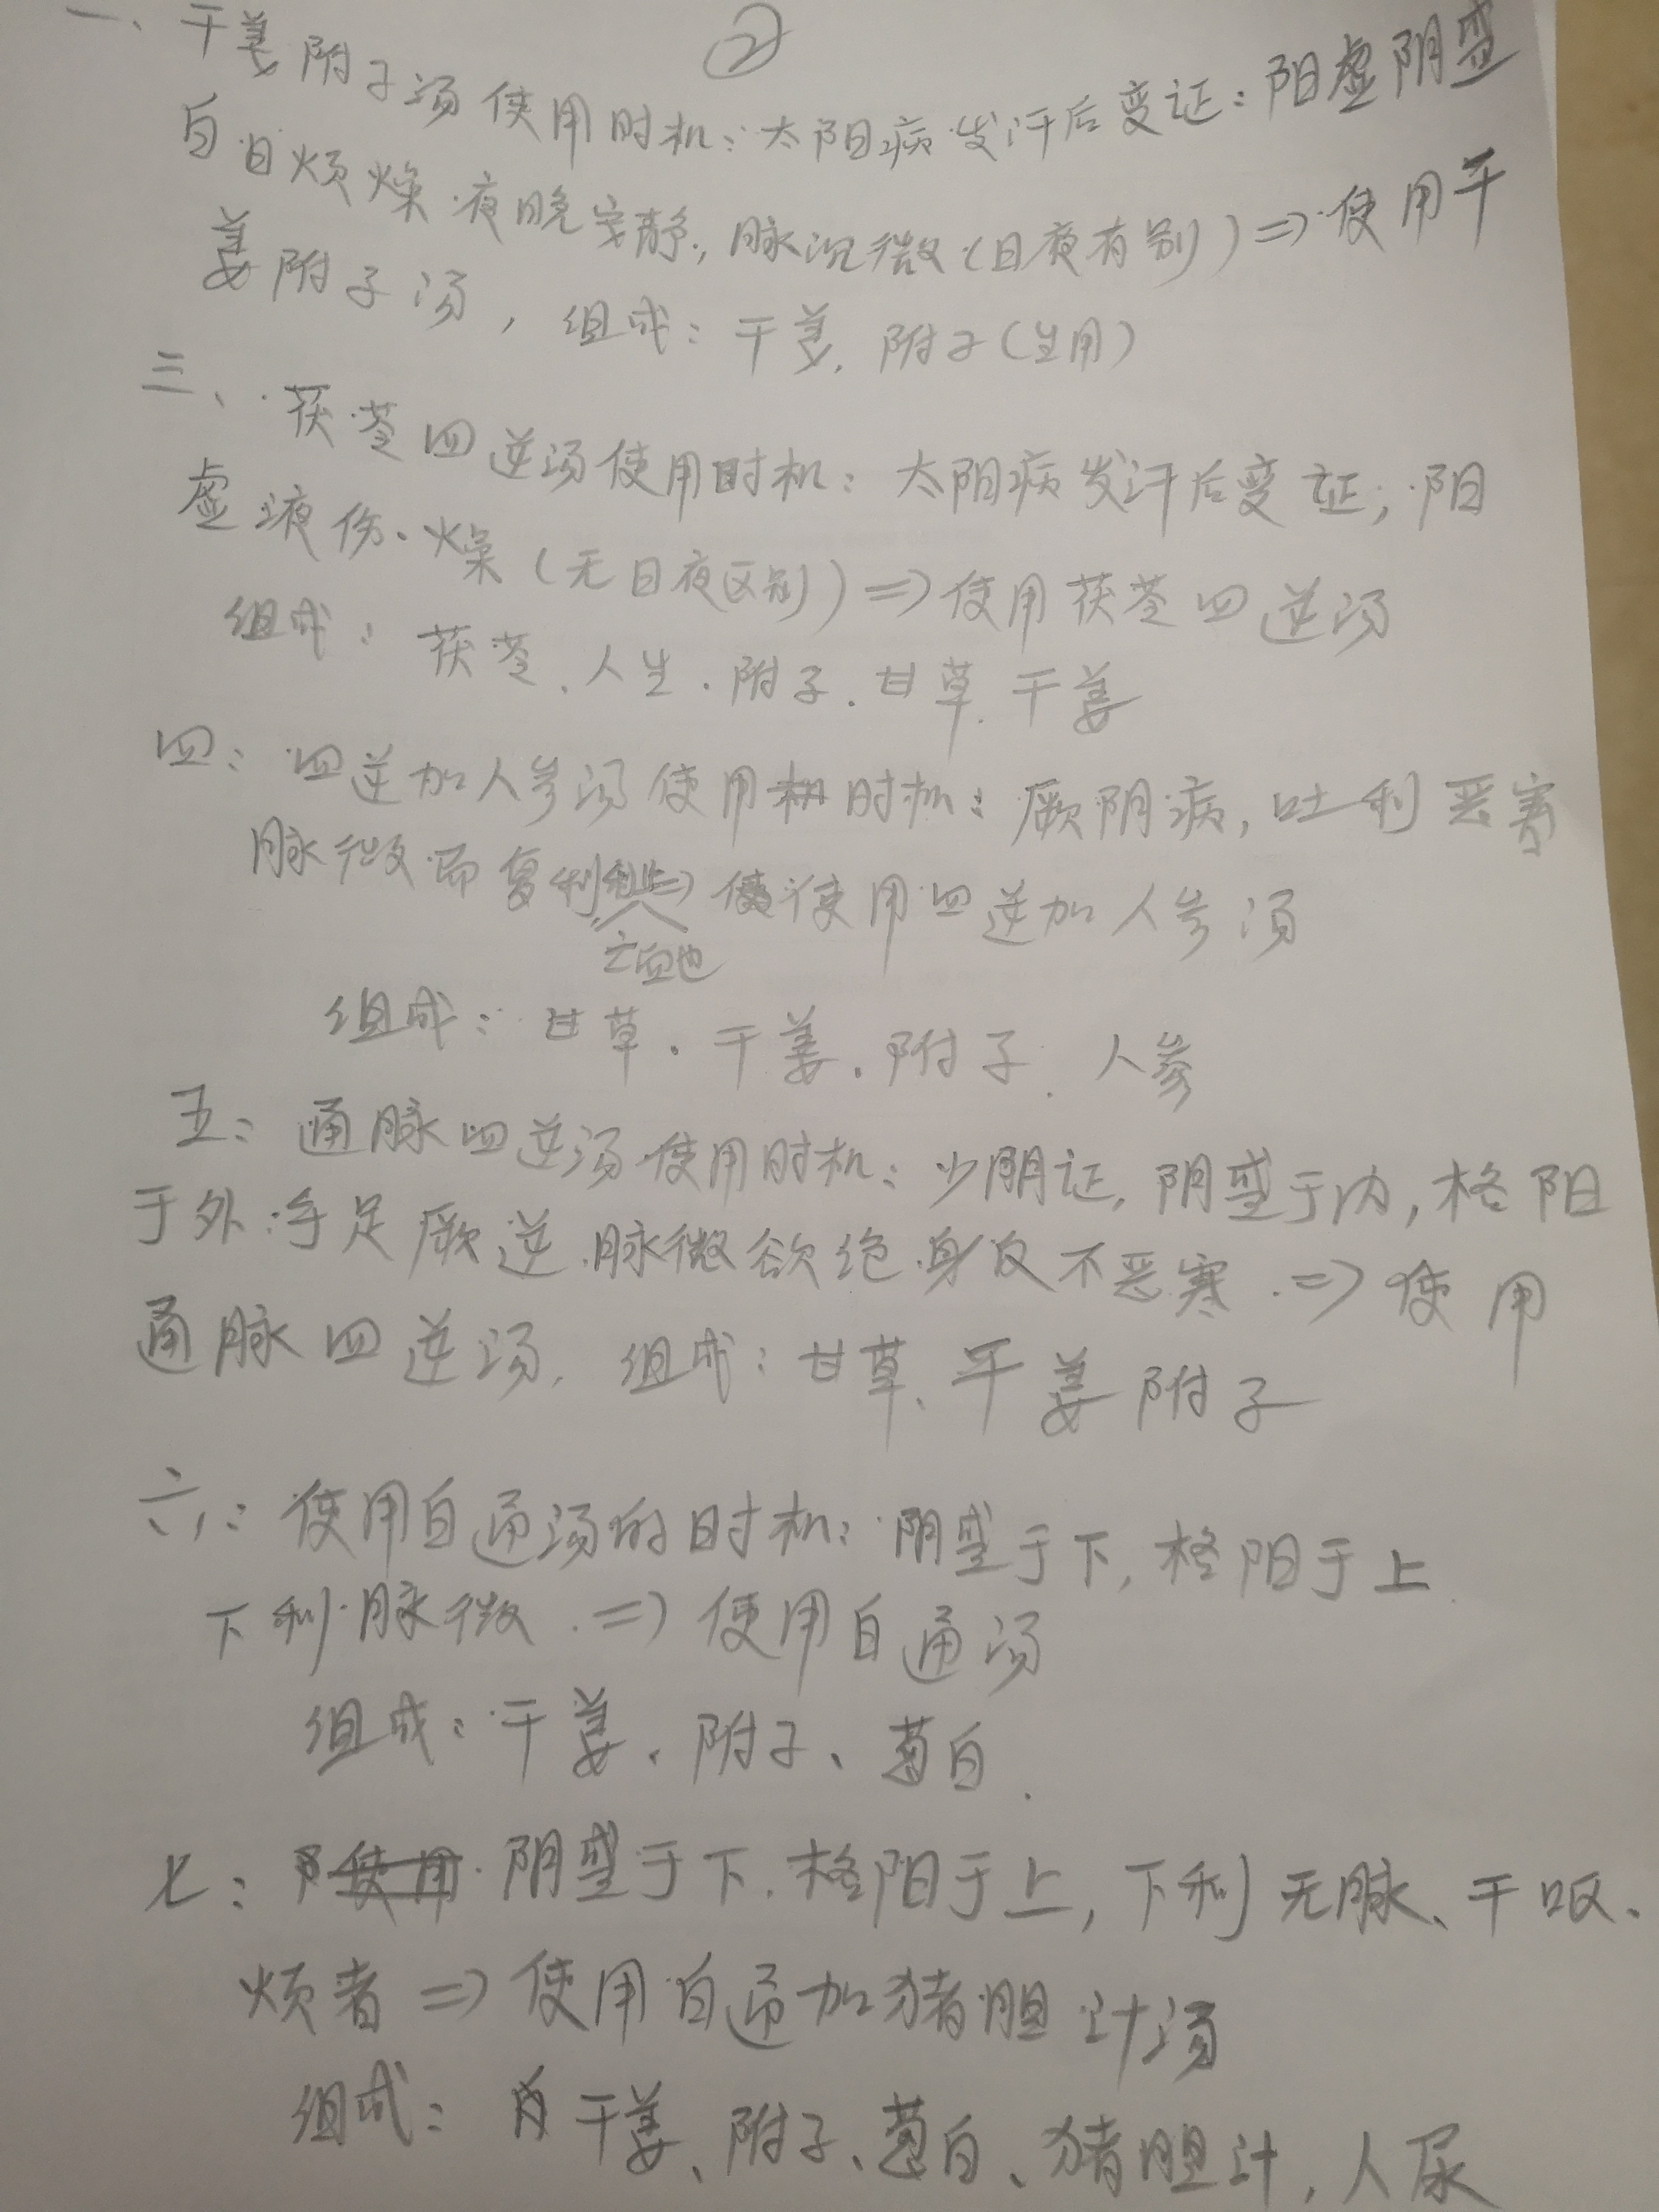 ②
一、干姜附子汤使用时机：太阳病发汗后变证：阳虚阴盛
白日烦燥.夜晚安静,脉沉微(日夜有别)⇒使用干
姜附子汤，组成：干姜.附子(生用)
三、茯苓四逆汤使用时机：太阳病发汗后变证;阳
虚液伤.燥(无日夜区别)⇒使用茯苓四逆汤
组成：茯苓.人生.附子.甘草.干姜
四：四逆加人参汤使用时机：厥阴病,吐利恶寒
脉微而复利⇒使用四逆加人参汤
亡血也
组成：甘草.干姜.附子.人参
五：通脉四逆汤使用时机：少阴证,阴盛于内,格阳
于外:手足厥逆.脉微欲绝.身反不恶寒.⇒使用
通脉四逆汤.组成：甘草.干姜附子
六：使用白通汤的时机：阴盛于下,格阳于上
下利.脉微.⇒使用白通汤
组成：干姜、附子、葱白.
七：阴盛于下.格阳于上,下利无脉、干呕、
烦者⇒使用白通加猪胆汁汤
组成：干姜、附子、葱白、猪胆汁,人尿